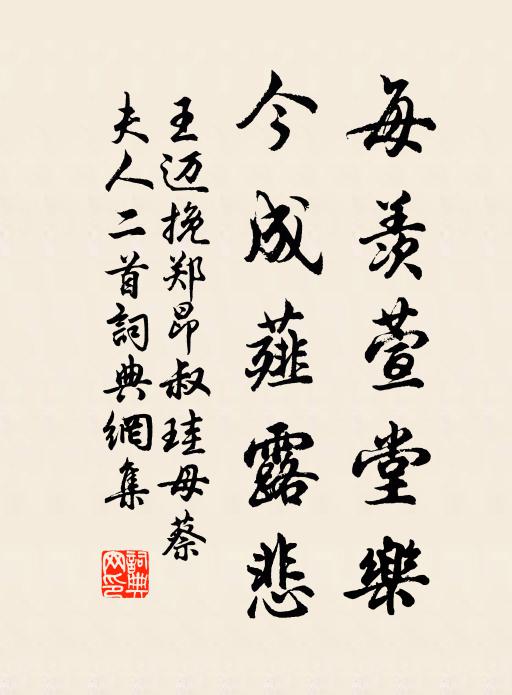 每羡萱堂樂
今成薤露悲
王迈挽郑昂叔珪母蔡
夫人二首詞典網集
詞典網印